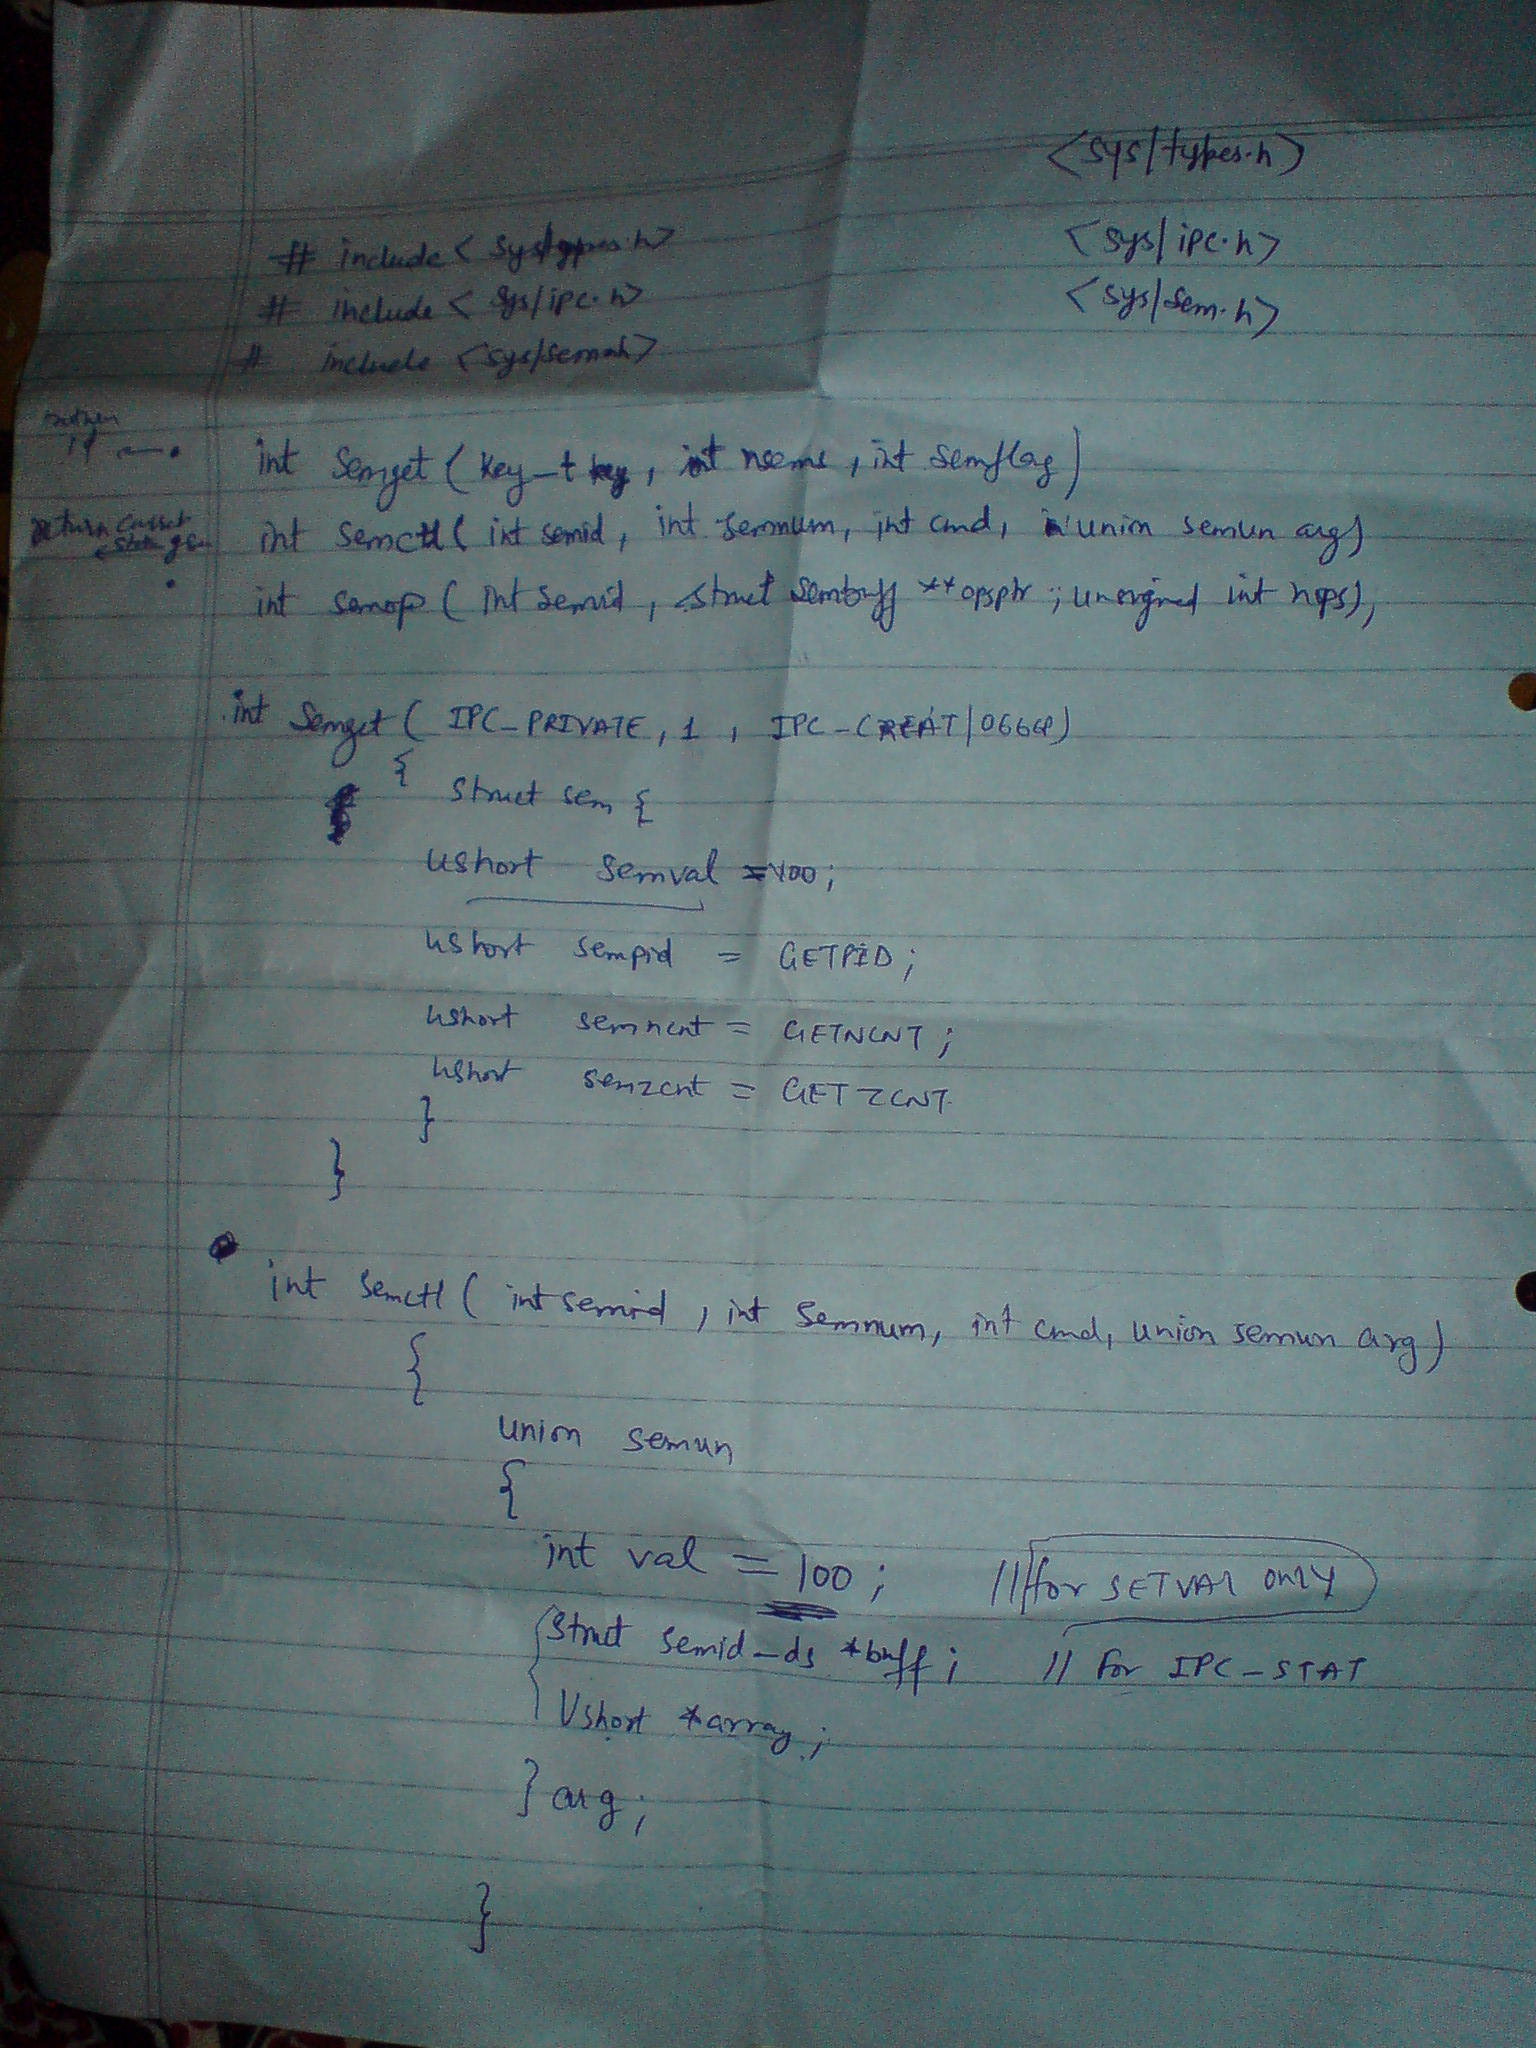 <sys/types.h>
# include < sys/types.h>
<sys/ipc.h>
# include < sys/ipc.h>
<sys/sem.h>
# include <sys/sem.h>
return
id
int semget ( key_t key, int nsems, int semflag)
return
int semctl ( int semid, int semnum, int cmd, union semun arg)
int semop ( int semid, struct sembuff **opsptr ; unsigned int nops),
int semget ( IPC_PRIVATE, 1, IPC_CREAT|0666)
{
struct sem {
ushort semval = 100;
ushort sempid = GETPID;
ushort semncnt = GETNCNT;
ushort semzcnt = GETZCNT.
}
}
int semctl ( int semid, int semnum, int cmd, union semun arg)
{
union semun
{
int val = 100; // for SETVAL ONLY
struct semid_ds *buff; // for IPC_STAT
Ushort *array;
} arg;
}